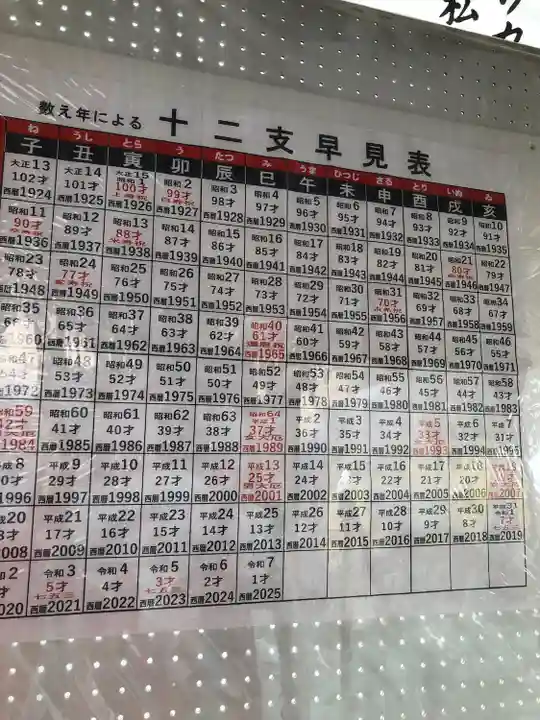 リカ
松
数え年による 十二支早見表
ね うし とら う たつ み うま ひつじ さる とり いぬ ゐ
子 丑 寅 卯 辰 巳 午 未 申 酉 戌 亥
大正13 大正14 大正15 昭和1 昭和2 昭和3 昭和4 昭和5 昭和6 昭和7 昭和8 昭和9 昭和10
102才 101才 100才 99才 98才 97才 96才 95才 94才 93才 92才 91才
上寿祝 白寿祝
西暦1924 西暦1925 西暦1926 西暦1927 西暦1928 西暦1929 西暦1930 西暦1931 西暦1932 西暦1933 西暦1934 西暦1935
昭和11 昭和12 昭和13 昭和14 昭和15 昭和16 昭和17 昭和18 昭和19 昭和20 昭和21 昭和22
90才 89才 88才 87才 86才 85才 84才 83才 82才 81才 80才 79才
卒寿祝 米寿祝 傘寿祝
西暦1936 西暦1937 西暦1938 西暦1939 西暦1940 西暦1941 西暦1942 西暦1943 西暦1944 西暦1945 西暦1946 西暦1947
昭和23 昭和24 昭和25 昭和26 昭和27 昭和28 昭和29 昭和30 昭和31 昭和32 昭和33 昭和34
78才 77才 76才 75才 74才 73才 72才 71才 70才 69才 68才 67才
喜寿祝
西暦1948 西暦1949 西暦1950 西暦1951 西暦1952 西暦1953 西暦1954 西暦1955 西暦1956 西暦1957 西暦1958 西暦1959
昭和35 昭和36 昭和37 昭和38 昭和39 昭和40 昭和41 昭和42 昭和43 昭和44 昭和45 昭和46
66才 65才 64才 63才 62才 61才 60才 59才 58才 57才 56才 55才
還暦祝
1960 西暦1961 西暦1962 西暦1963 西暦1964 西暦1965 西暦1966 西暦1967 西暦1968 西暦1969 西暦1970 西暦1971
和47 昭和48 昭和49 昭和50 昭和51 昭和52 昭和53 昭和54 昭和55 昭和56 昭和57 昭和58
才 53才 52才 51才 50才 49才 48才 47才 46才 45才 44才 43才
1972 西暦1973 西暦1974 西暦1975 西暦1976 西暦1977 西暦1978 西暦1979 西暦1980 西暦1981 西暦1982 西暦1983
和59 昭和60 昭和61 昭和62 昭和63 昭和64 平成1 平成2 平成3 平成4 平成5 平成6 平成7
2才 41才 40才 39才 38才 37才 36才 35才 34才 33才 32才 31才
女大厄 女大厄
1984 西暦1985 西暦1986 西暦1987 西暦1988 西暦1989 西暦1990 西暦1991 西暦1992 西暦1993 西暦1994 西暦1995
成8 平成9 平成10 平成11 平成12 平成13 平成14 平成15 平成16 平成17 平成18 平成19
0才 29才 28才 27才 26才 25才 24才 才 22才 21才 才
男大厄
1996 西暦1997 西暦1998 西暦1999 西暦2000 西暦2001 西暦2002 西暦2003 西暦2004 西暦2005 西暦2006 西暦2007
20 平成21 平成22 平成23 平成24 平成25 平成26 平成27 平成28 平成29 平成30 平成31 令和1
才 17才 16才 15才 14才 13才 12才 11才 10才 9才 8才 7才
七五三
2008 西暦2009 西暦2010 西暦2011 西暦2012 西暦2013 西暦2014 西暦2015 西暦2016 西暦2017 西暦2018 西暦2019
和2 令和3 令和4 令和5 令和6 令和7
才 5才 4才 3才 2才 1才
七五三 七五三
020 西暦2021 西暦2022 西暦2023 西暦2024 西暦2025